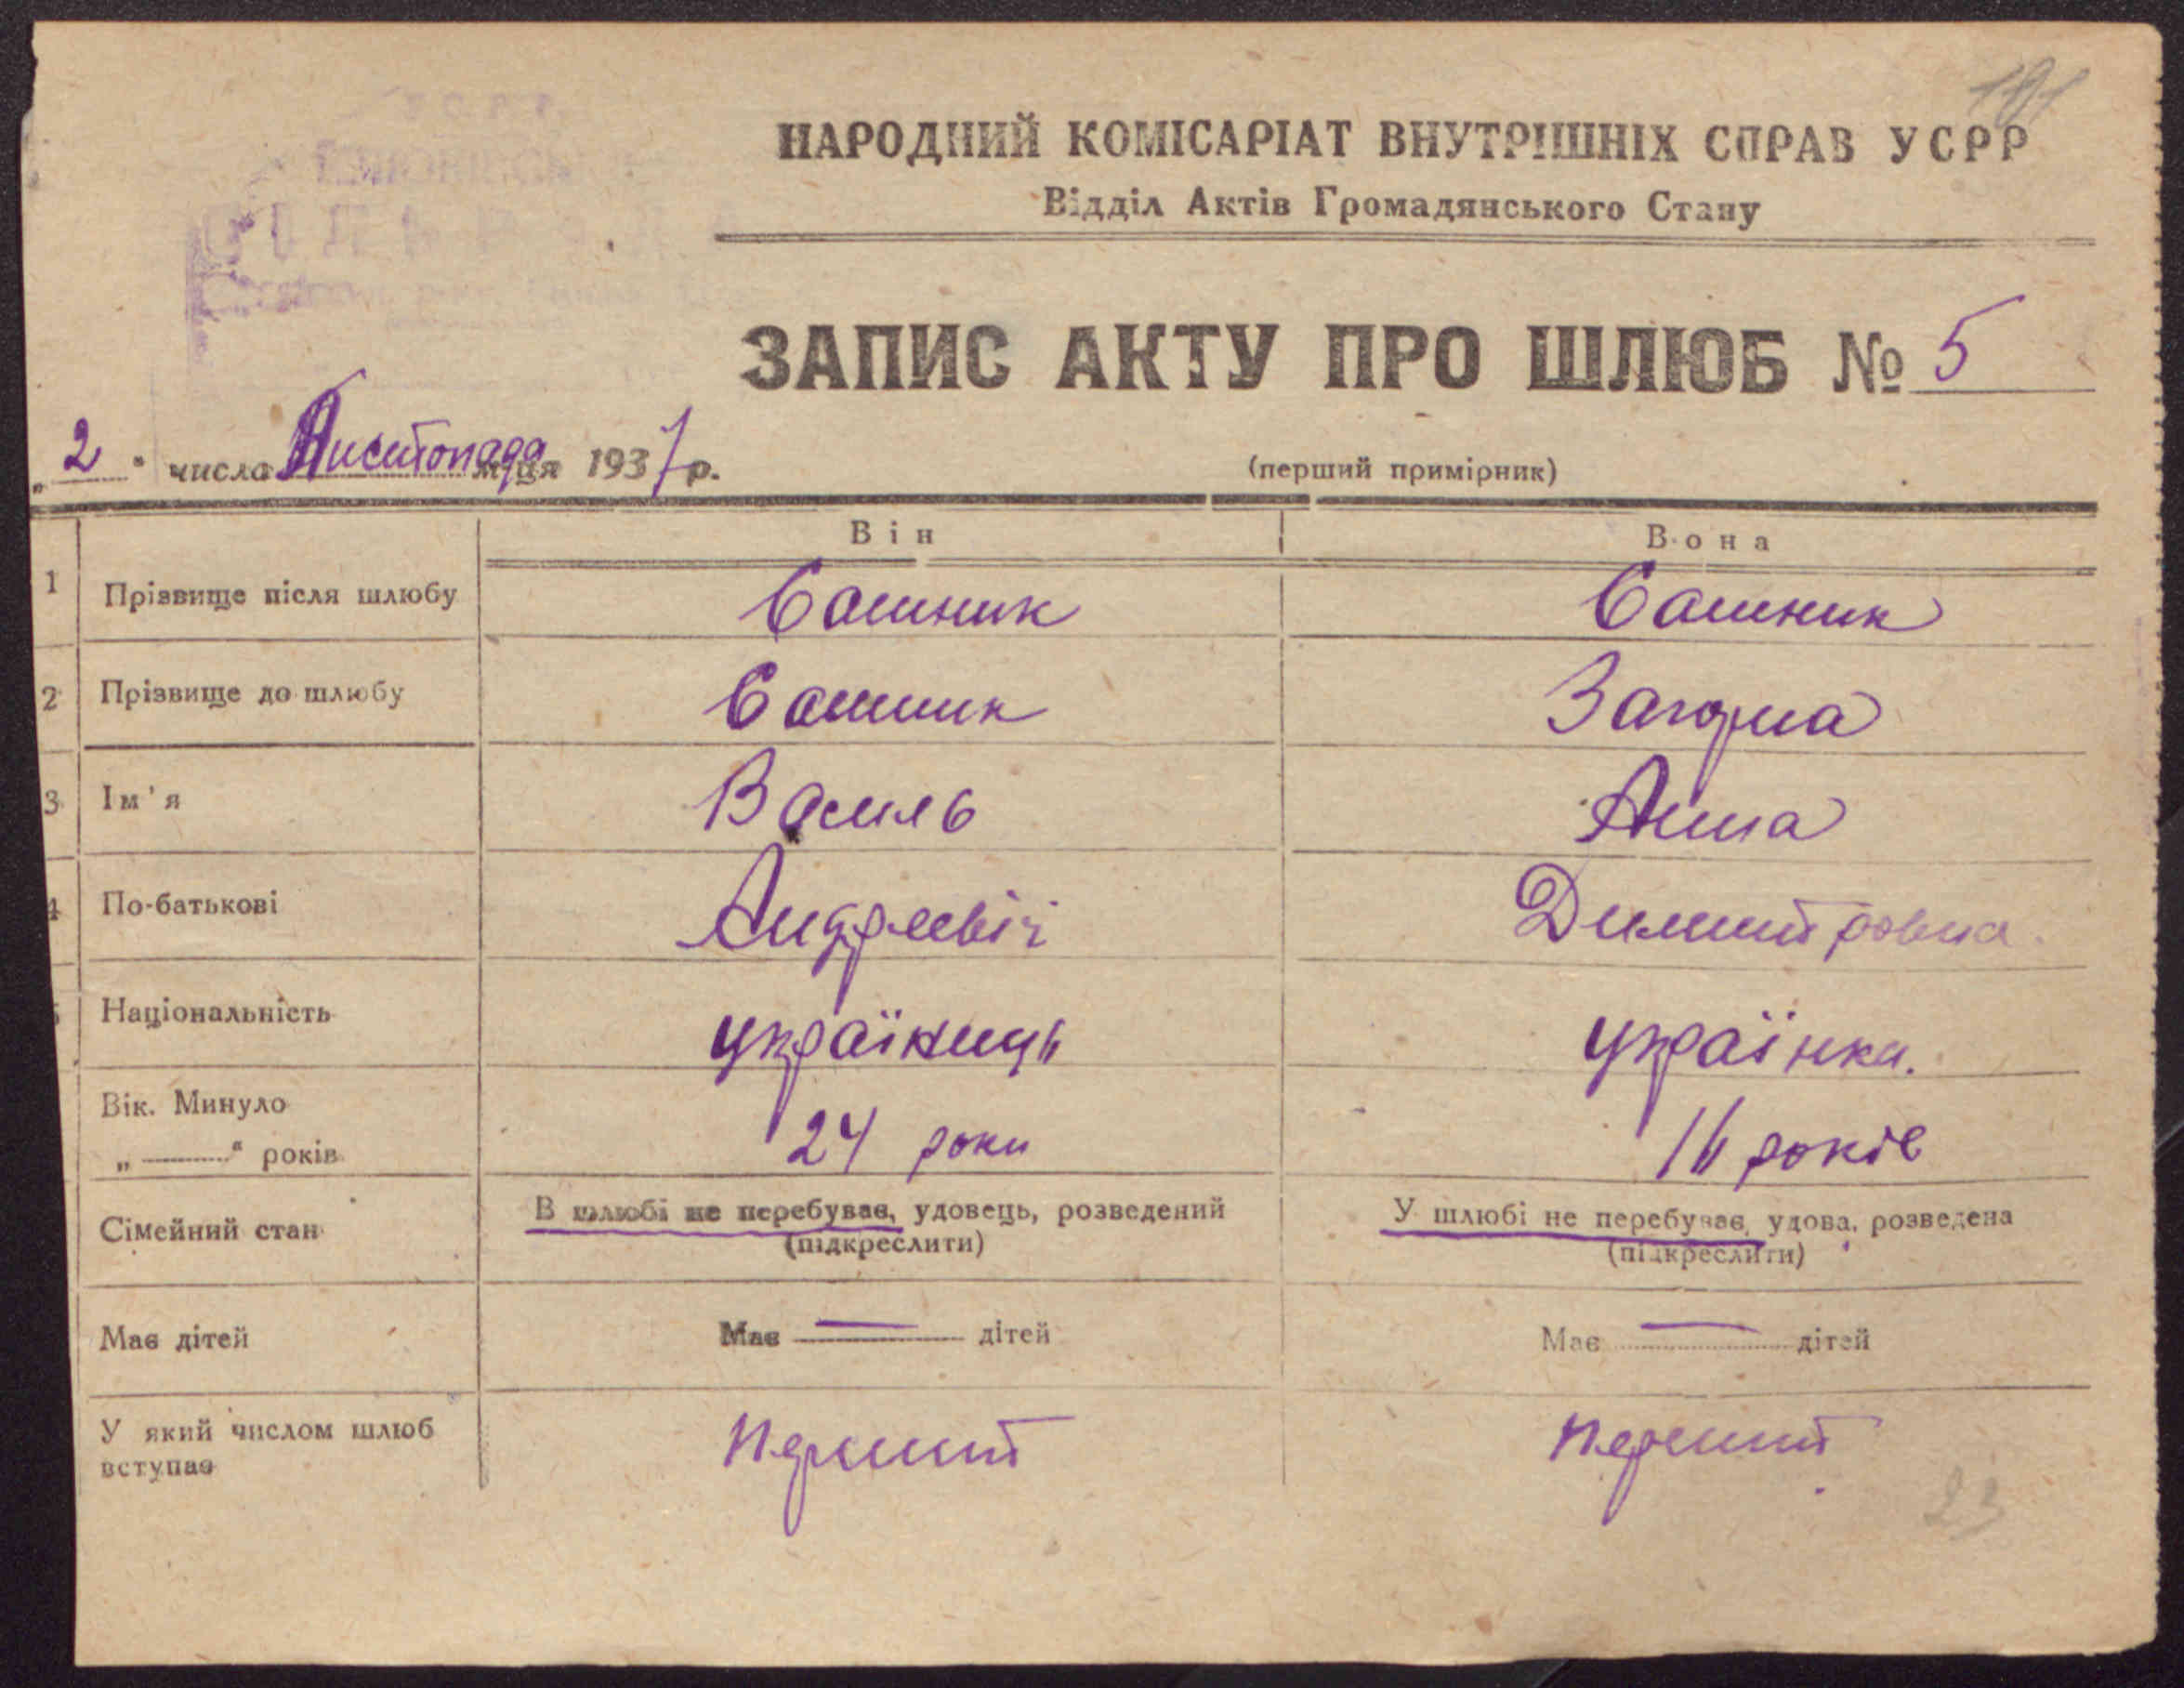 191
НАРОДНИЙ КОМІСАРІАТ ВНУТРІШНІХ СПРАВ УСРР
Відділ Актів Громадянського Стану
ЗАПИС АКТУ ПРО ШЛЮБ № 5
„2“ числа Листопада м-ця 1937 р.
(перший примірник)
Він Вона
1 Прізвище після шлюбу Сашник Сашник
2 Прізвище до шлюбу Сашник
3 Ім'я Василь Анна
4 По-батькові Андреевіч Димитровна
5 Національність українець українка.
Вік. Минуло
„ “ років 24 роки 16 років
Сімейний стан В шлюбі не перебував, удовець, розведений У шлюбі не перебував, удова, розведена
(підкреслити) (підкреслити)
Має дітей Має — дітей Має — дітей
У який числом шлюб
вступає перший перший
23